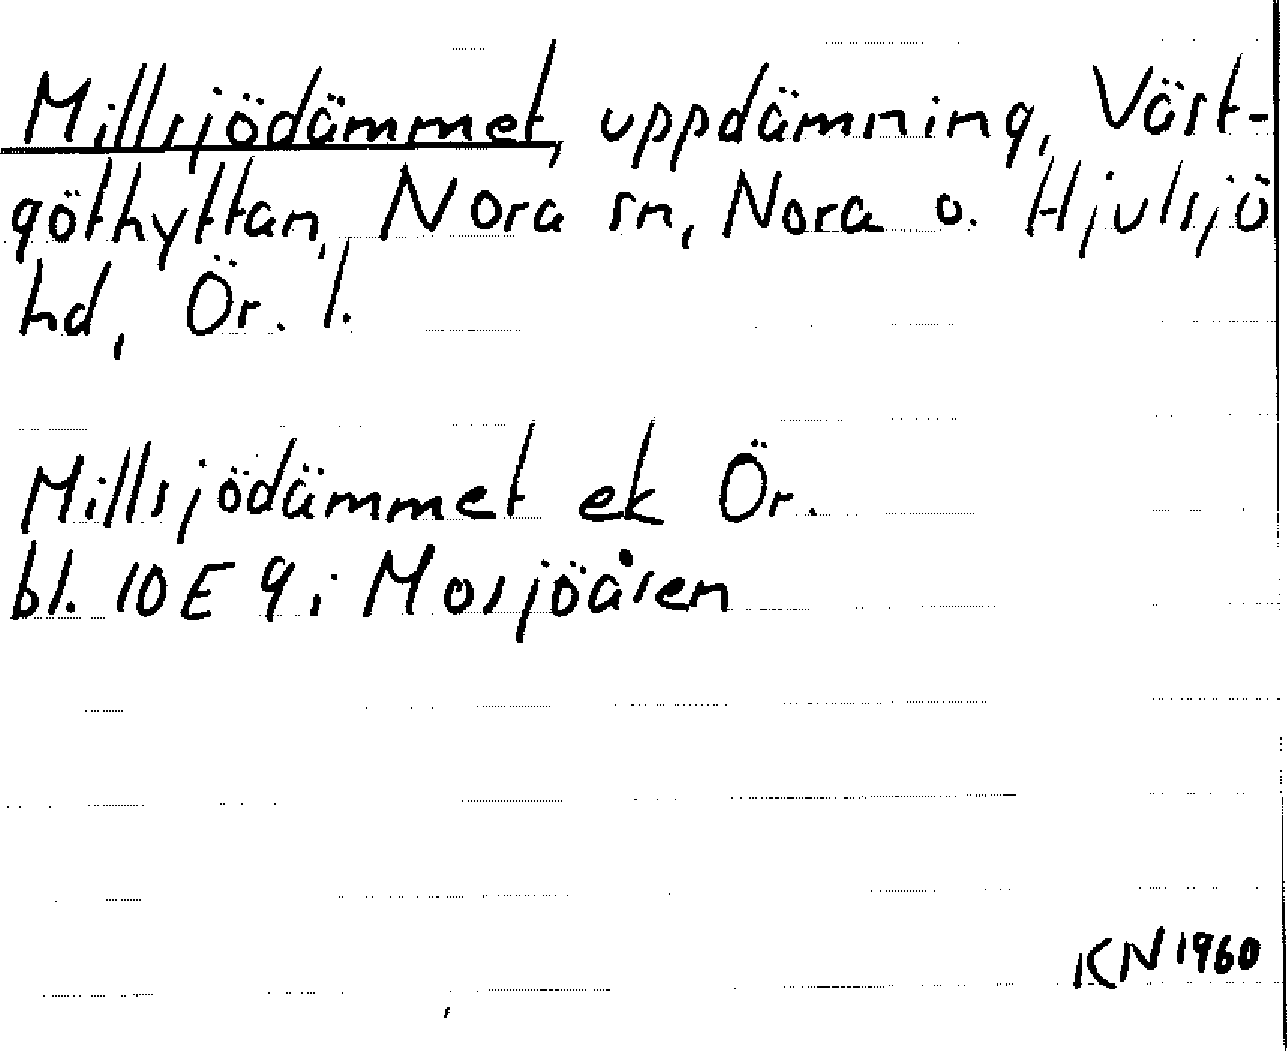 Millsjödämmet, uppdämning, Väst-
göthyttan, Nora sn, Nora o. Hjulsjö
hd, Ör. l.
Millsjödämmet ek Ör.
bl. 10E 9i Mosjöåsen
KN 1960